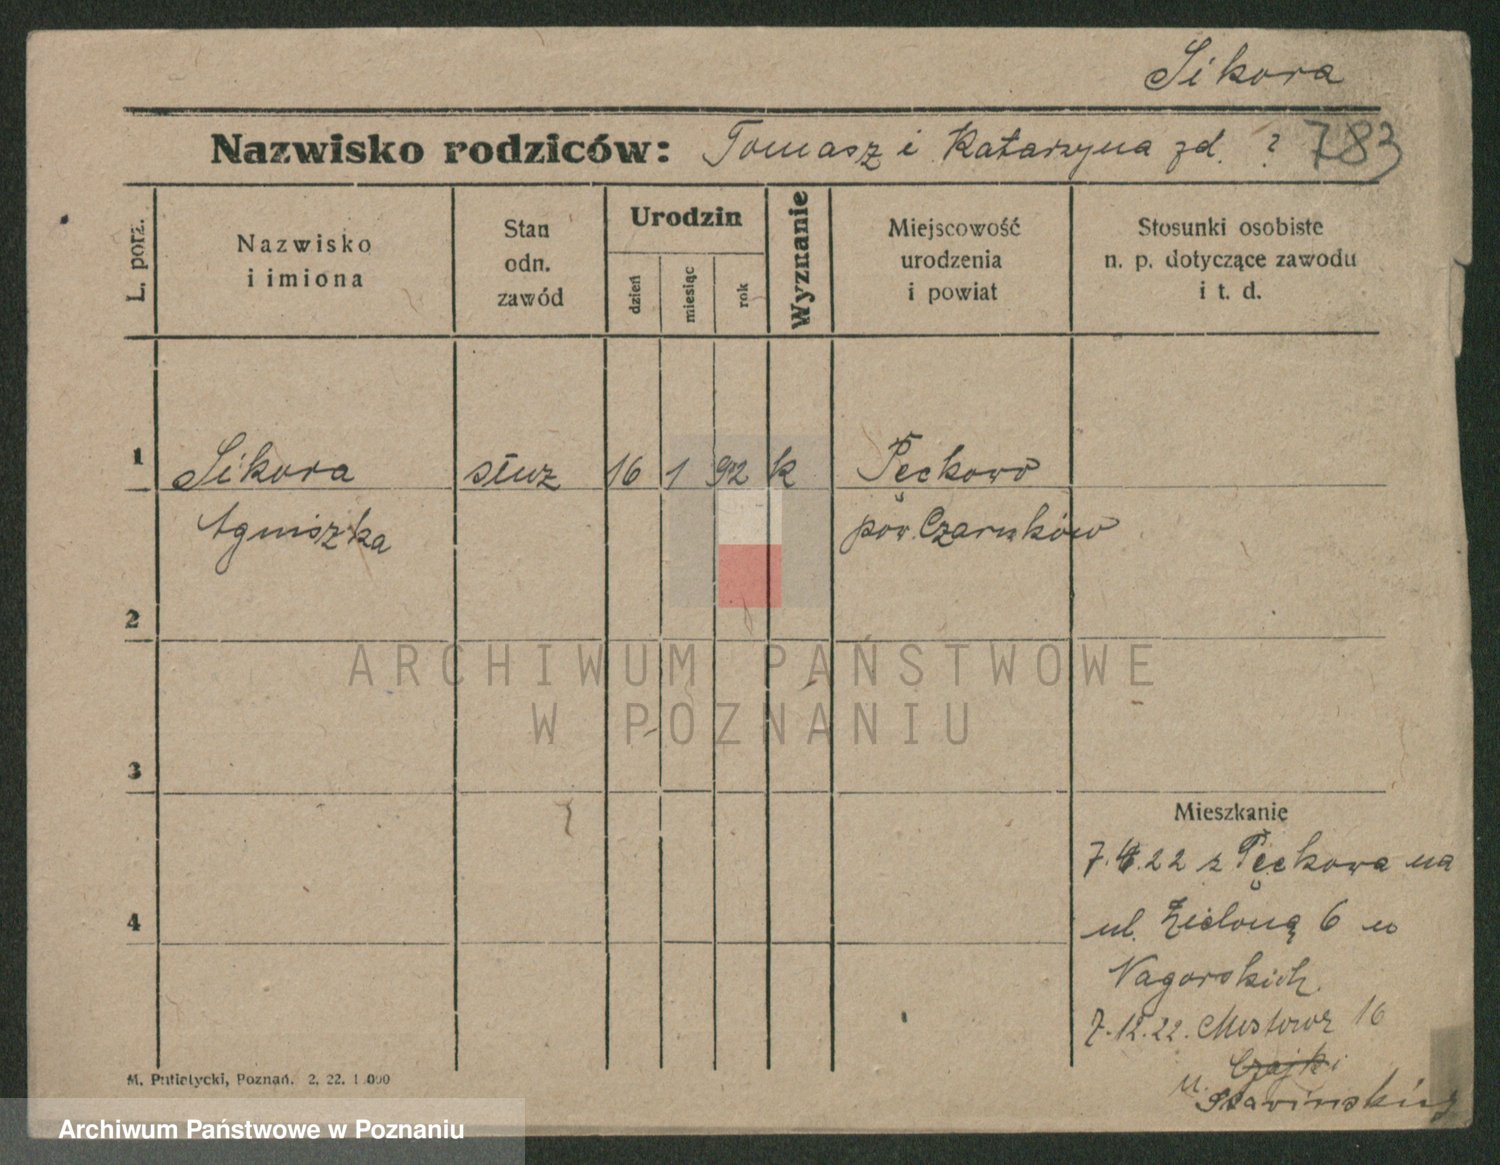 Sikora
Nazwisko rodziców: Tomasz i Katarzyna zd. ? 783
L. porz.
Nazwisko
i imiona
Stan
odn.
zawód
Urodzin
dzień
miesiąc
rok
Wyznanie
Miejscowość
urodzenia
i powiat
Stosunki osobiste
n. p. dotyczące zawodu
i t. d.
1 Sikora służ 16 1 92 k Pęckowo
Agniszka pow. Czarnków
2
ARCHIWUM PAŃSTWOWE
W POZNANIU
3
Mieszkanie
7.4.22 z Pęckowa na
4
ul. Zieloną 6 u
Nagorskich.
7.12.22. Mostowa 16
Czajki
u.
M. Putiatycki, Poznań. 2. 22. 1.000
Archiwum Państwowe w Poznaniu